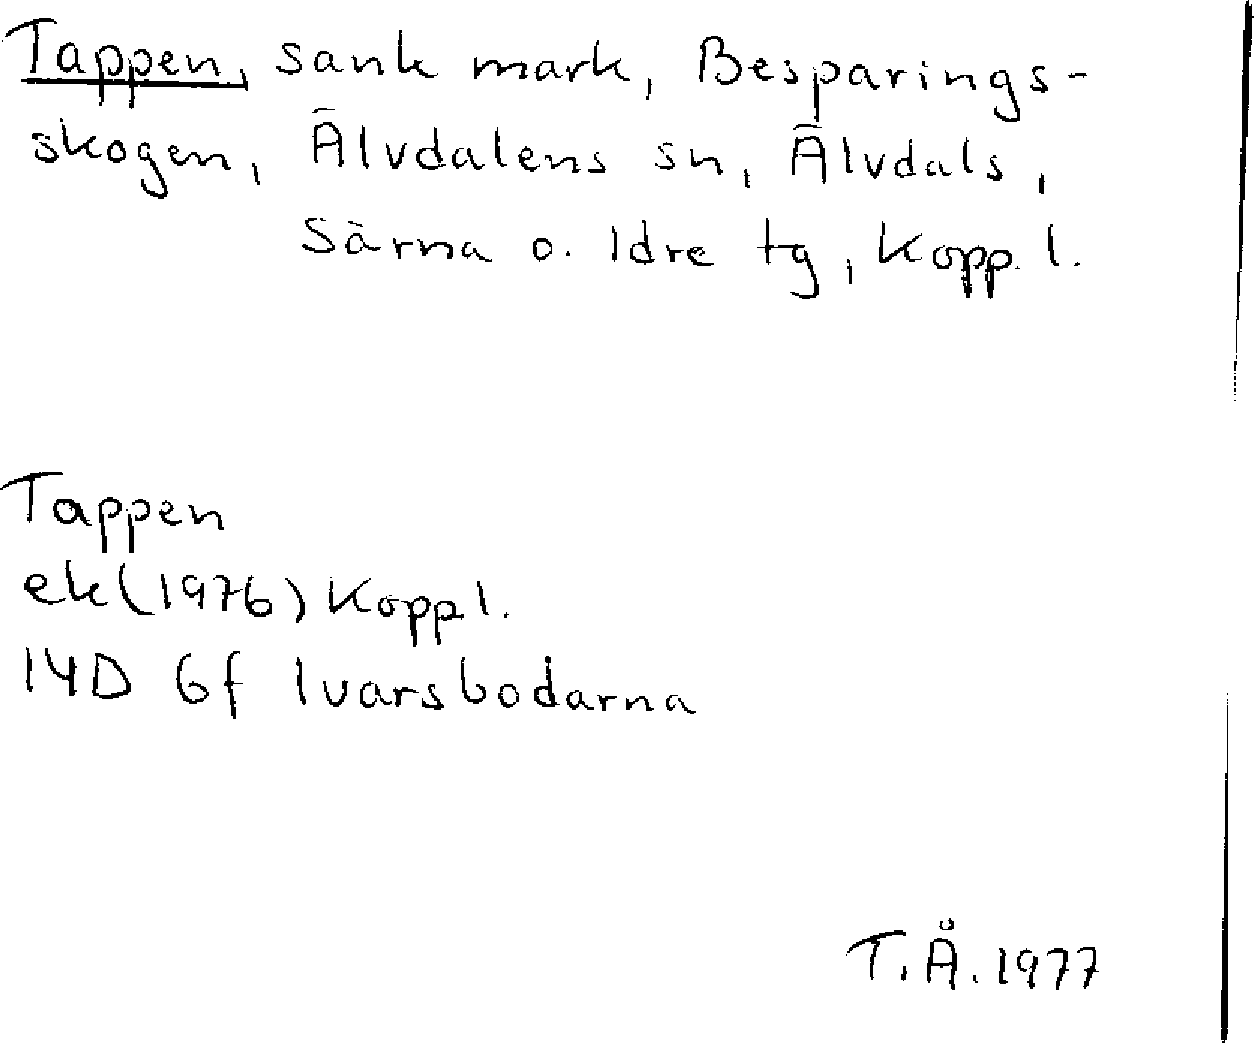 Tappen, sank mark, Besparings-
skogen, Älvdalens sn, Älvdals,
Särna o. Idre tg, Kopp. l.
Tappen
ek (1976) Kopp l.
14D 6f Ivarsbodarna
T. Å. 1977